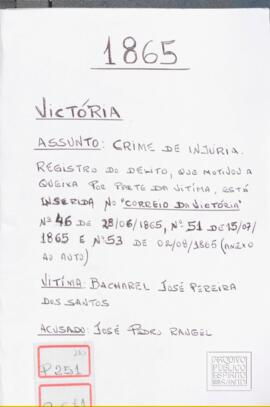 1865
VICTÓRIA
ASSUNTO: CRIME DE INJURIA.
REGISTRO DO DELITO, QUE MOTIVOU A
QUEIXA POR PARTE DA VITIMA, ESTÁ
INSERIDA NO "CORREIO DA VICTÓRIA"
Nº 46 DE 28/06/1865, Nº 51 DE 15/07/
1865 E Nº 53 DE 02/08/1865 (ANEXO
AO AUTO)
VITIMA: BACHAREL JOSÉ PEREIRA
DOS SANTOS
ACUSADO: JOSÉ PEDRO RANGEL
P251
ARQUIVO
PÚBLICO
ESPÍRITO
SANTO